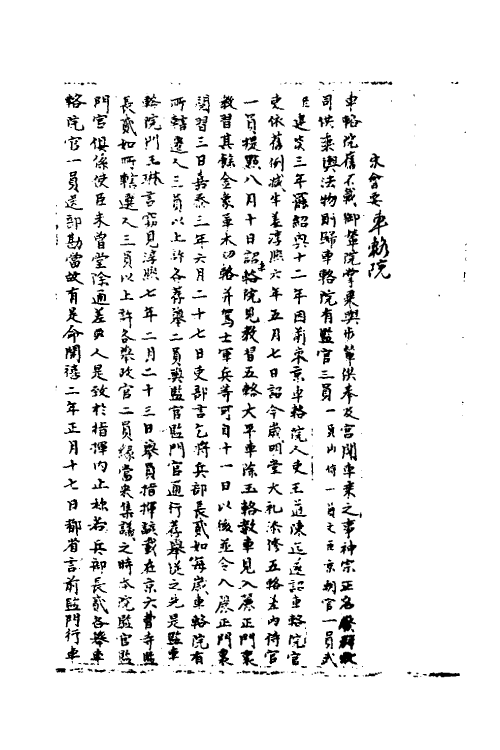 永會要車輅院
車輅院舊不載御輦院掌乘輿步輦供奉及宮闈車乘之事神宗正名
司供乘輿法物則歸車輅院有監官三員一員內侍一員文臣京朝官一員武
臣建炎三年罷紹興十二年因前東京車輅院人吏王道陳迄遂詔車輅院官
吏依舊例減半差淳熙六年五月七日詔今歲明堂大礼添修五輅差內侍官
一員提點八月十日詔車輅院見教習五輅大平車除玉輅教車見入麗正門裏
教習其餘金象革木四輅并駕士軍兵等可自十一日以後並令入麗正門裏
閱習三日嘉泰三年六月二十七日吏部言乞將兵部長貳如每歲車輅院有
所轄選人三員以上許各薦舉二員與監官監門官通行薦舉從之先是監車
輅院門王琳言竊見淳熙七年二月二十三日舉員指揮該載在京六曹寺監
長貳如所轄選人三員以上許各舉改官二員緣當來集議之時本院監官監
門官俱係使臣未曾堂除通差文人是致於指揮內止稱若兵部長貳各舉車
輅院官一員送部勘當故有是命開禧二年正月十七日都省言前監門行車